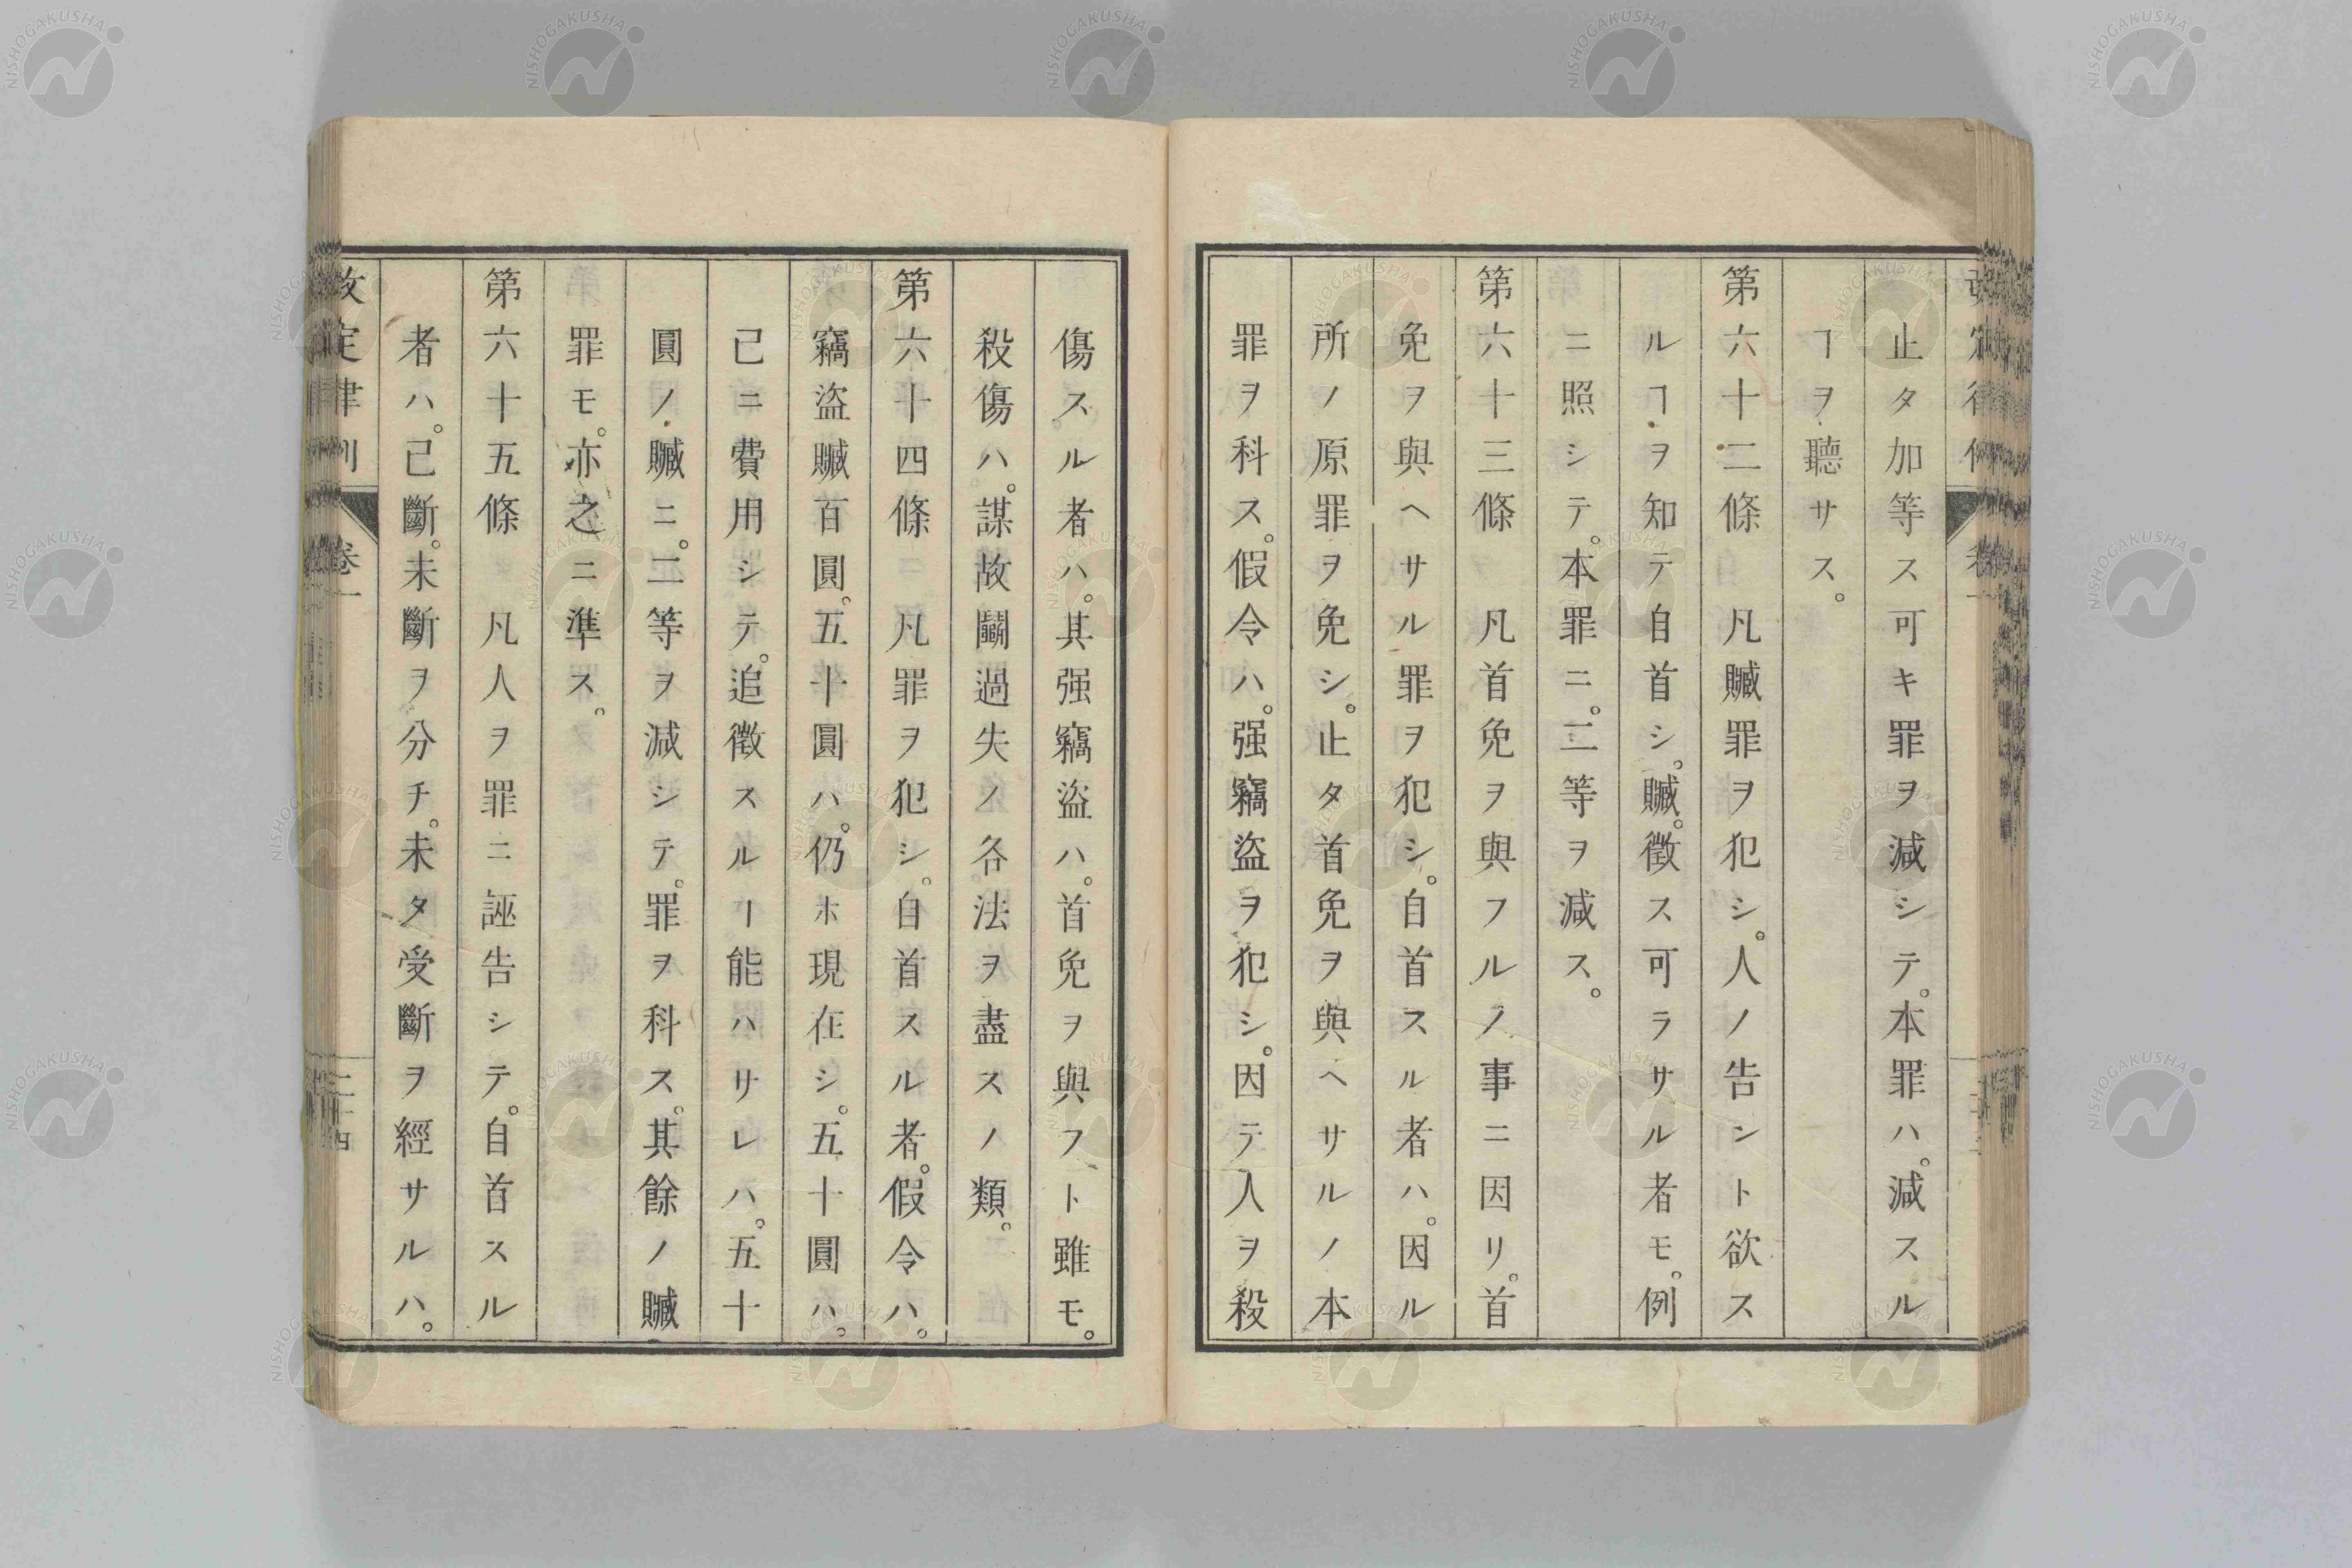 止タ加等ス可キ罪ヲ減シテ。本罪ハ。減スル
ヿヲ聽サス。
第六十二條　凡贓罪ヲ犯シ。人ノ告ント欲ス
ルヿヲ知テ自首シ。贓。徵ス可ラサル者モ。例
ニ照シテ。本罪ニ。二等ヲ減ス。
第六十三條　凡首免ヲ與フルノ事ニ因リ。首
免ヲ與ヘサル罪ヲ犯シ。自首スル者ハ。因ル
所ノ原罪ヲ免シ。止タ首免ヲ與ヘサルノ本
罪ヲ科ス。假令ハ。强竊盜ヲ犯シ。因テ人ヲ殺
傷スル者ハ。其强竊盜ハ。首免ヲ與フト雖モ。
殺傷ハ。謀故鬭過失ノ各法ヲ盡スノ類。
第六十四條　凡罪ヲ犯シ。自首スル者。假令ハ。
竊盜贓百圓。五十圓ハ。仍ホ現在シ。五十圓ハ。
已ニ費用シテ。追徵スルー能ハサレハ。五十
圓ノ贓ニ。二等ヲ減シテ。罪ヲ科ス。其餘ノ贓
罪モ。亦之ニ準ス。
第六十五條　凡人ヲ罪ニ誣告シテ。自首スル
者ハ。已斷。未斷ヲ分チ。未タ受斷ヲ經サルハ。
改定律例　卷一　二十四
NISHOGAKUSHA